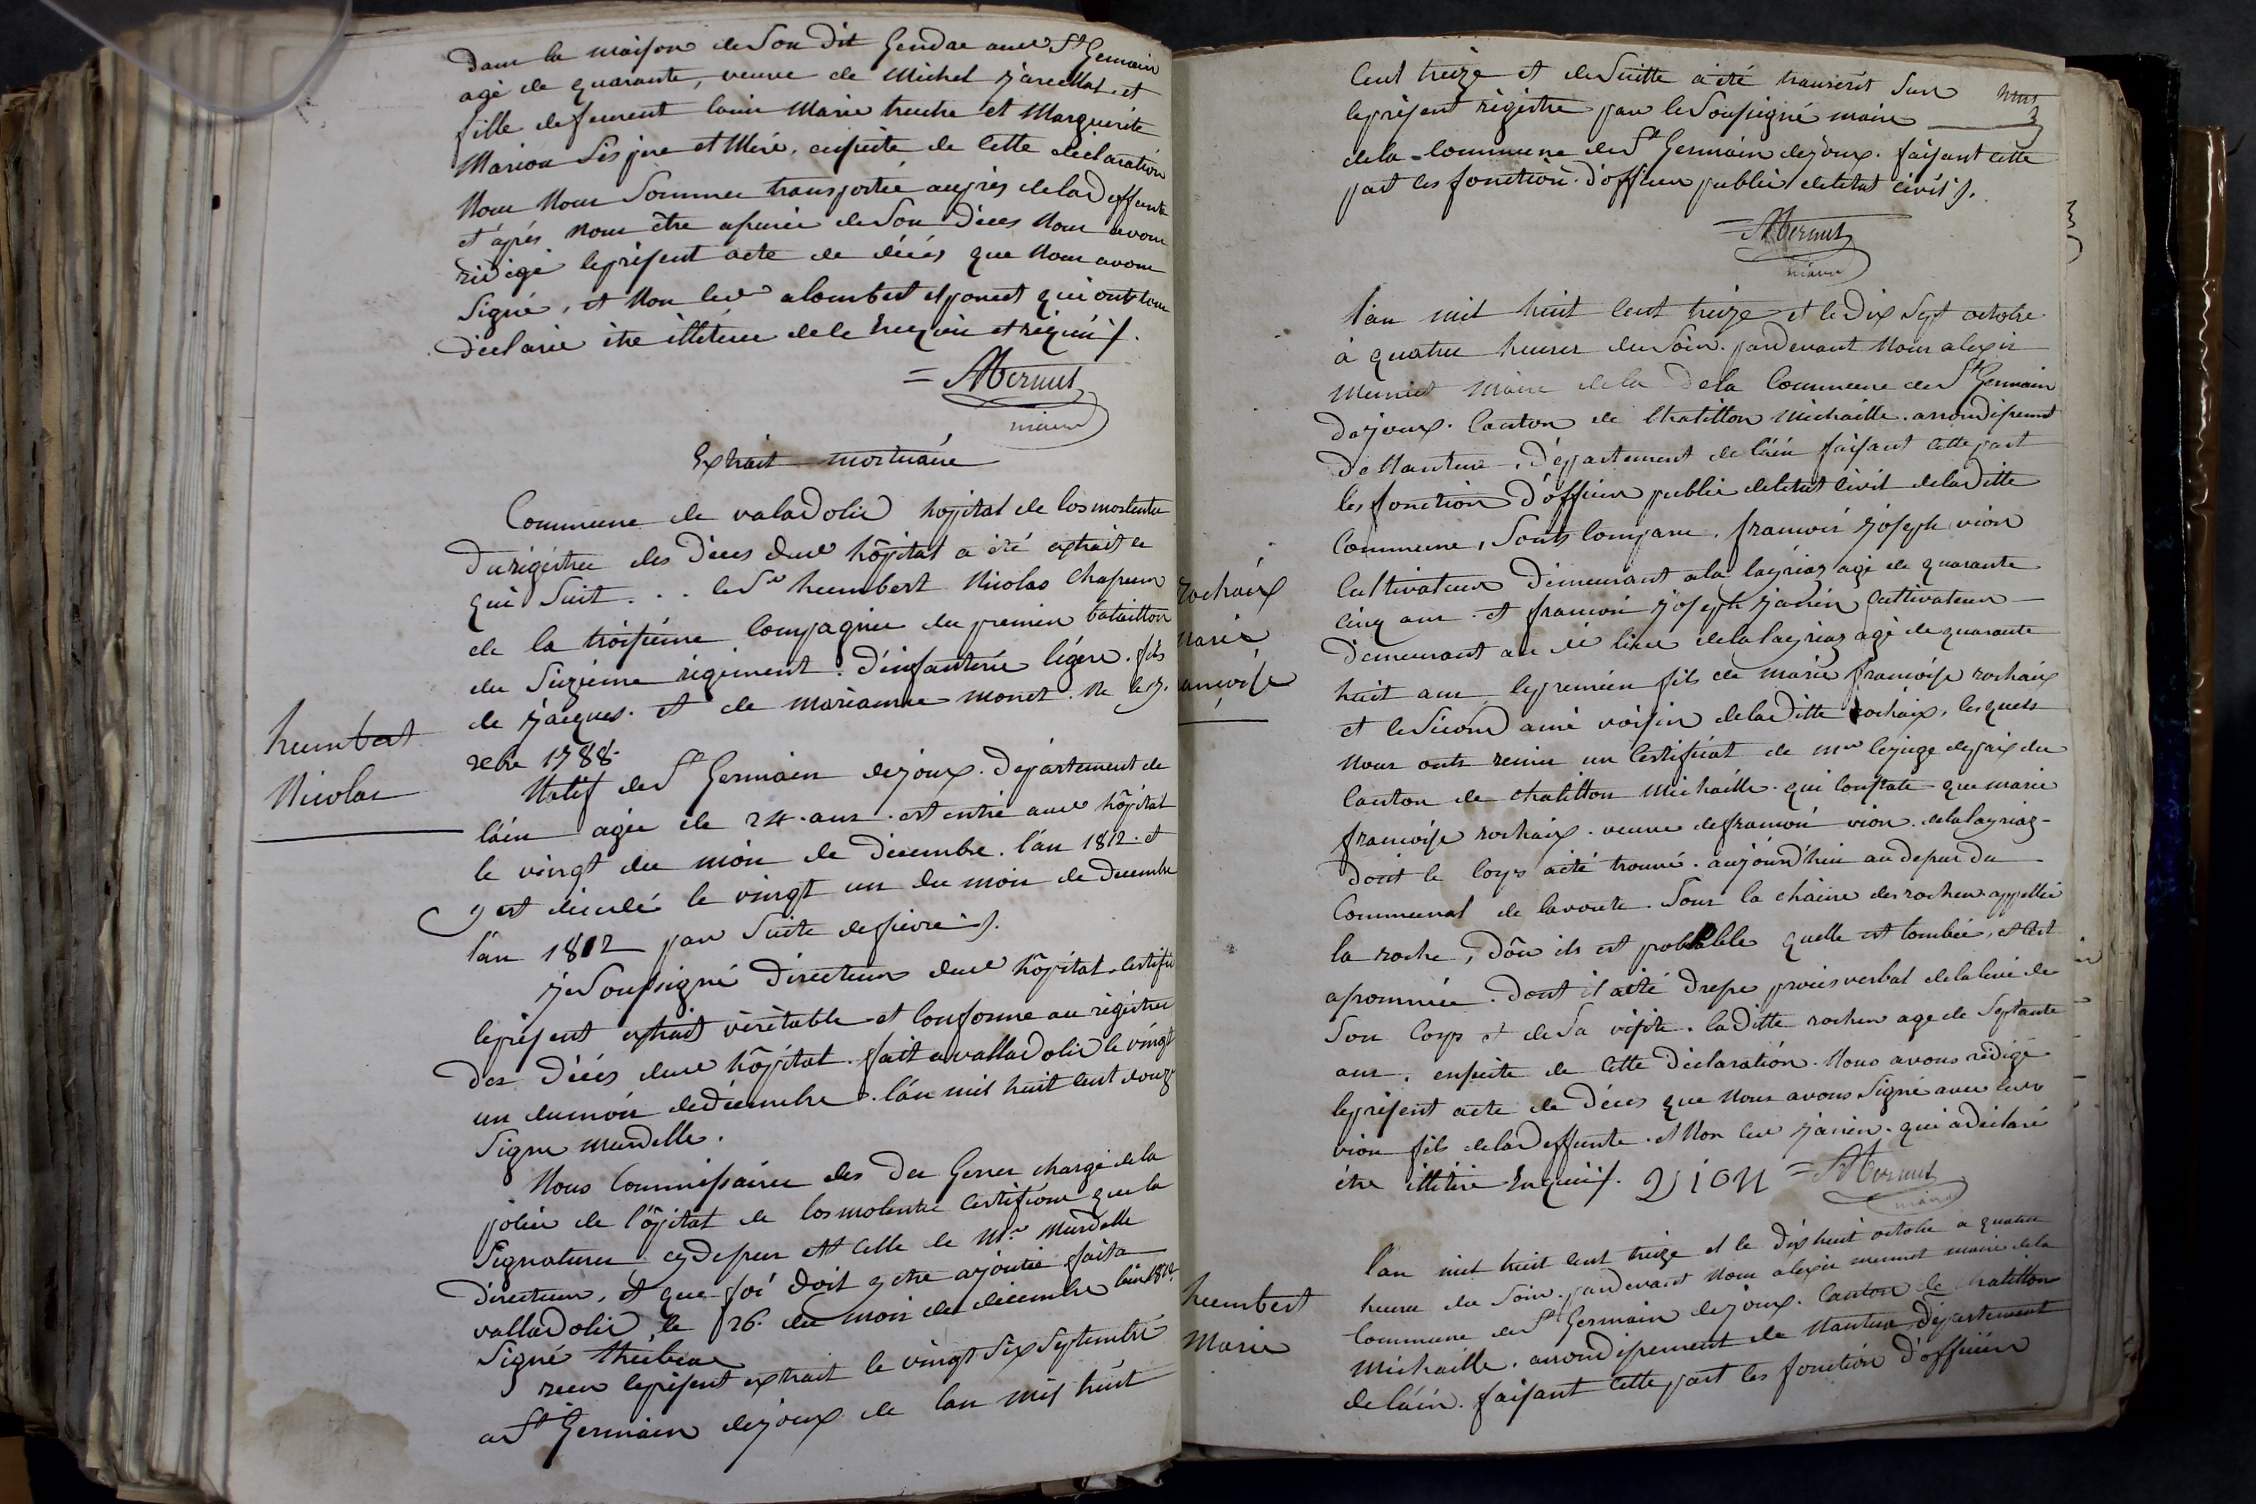 Dans la maison de Son dit Gendre audt St Germain
agé de quarante, veuve de Michel Jarcellat et
fille de feurent louis Marie truche et Marguerite
Marion Ses pere et Mere. ensuite de Cette declaration
Nous Nous Sommes transportée auprès de la deffunte
et après Nous être assurée de Son Déces Nous avons
rédigé le présent acte de décès que Nous avons
Signé, et Non led alombert et poncet qui ont tous
declarée être illitérée de ce Enquis et requis ſ.
= AMermet
maire
Extrait mortuaire
Commune de valadolid hopital de los mostentes
Du registre des Déces dud hôpital a été extrait ce
qui Suit . . . le Sr humbert Nicolas Chasseur
de la troisième Compagnie du premier bataillon
du Sizième régiment d'infanterie légère. fils
de Jacques. et de marianne monet. Né le 7.
xbre 1788.
humbert
Nicolas
Natif de St Germain dejoux. Département de
l'ain agée de 24. ans. est entré aud hôpital
le vingt du mois de Décembre. l'an 1812. et
y est décedé le vingt un du mois de decembre
l'an 1812 par Suite de fievre ſ.
Je Soussigné Directeur dud hôpital. Certifie
le présent extrait véritable et Conforme au régistre
des Décés dud hôpital. fait a valladolid le vingt
un du mois de décembre. l'an mil huit cent douze
Signe murdelle.
Nous Commissaire des Des Gerres chargé de la
police de l'ôpitat de los molentes Certifions que la
Signature cy dessus est Celle de Mr Murdelle
directeur, et que foi doit y etre ajoutée fait a
valladolid, le 26. du mois de décembre l'an 1812.
Signé
recu le présent extrait le vingt Six Septembre
a St Germain dejoux de l'an mil huit
Cent treize et de Suitte a été transcrit Sur
le présent régistre par le Soussigné maire
de la Commune de St Germain dejoux. faisant cette
part les fonction. D'officier public de l'etat civil ſ.
= AMermet
maire
rochaix
marie
ancoise
l'an mil huit Cent treize et le Dix Sept octobre
à quatre heures du Soir. pardevant Nous alexis
Mermet Maire de la De la Commune de St Germain
Dejoux. Canton de Chatillon Michaille. arrondissement
De Nantua. Département de l'ain faisant Cette part
les fonction D'officier public de l'etat civil de la Ditte
Commune, Sonts Comparu. francois Joseph vion
Cultivateur Demeurant a la layriaz agé de quarante
Cinq ans. et francois Joseph Janin Cultivateur
Demeurant au dé lieu de la layriaz agé de quarante
huit ans le premier fils de marie francoise rochaix
et le Second ami voisin de la Ditte rochaix. lesquels
Nous onts remis un Certificat de mr le juge de paix du
Canton de Chatillon Michaille. qui Constate que marie
francoise rochaix. veuve de francois vion. de la layriaz
Dont le Corps a été trouvé. aujourd'hui au Dessus du
Communal de la voute. Sous la chaine des rocher appellée
la roche, D'où ils est probable quelle est tombée, et s'est
assommée. Dont il a été Dressé procès verbal de la levé de
Son Corps et de Sa visite. la Ditte rochex age de Septante
ans. ensuite de Cette Déclaration. Nous avons rédigé
le présent acte de Déces que Nous avons Signé avec led
vion fils de la Deffunte. et Non led Janin. qui a déclaré
être illitéré Enquis ſ. VION = AMermet
maire
humbert
Marie
l'an mil huit cent treize et le dix huit octobre a quatre
heures du Soir. pardevant Nous alexis mermet maire de la
Commune de St Germain dejoux. Canton de Chatillon
Michaille. arrondissement de Nantua Département
de l'ain. faisant Cette part les fonction D'officier